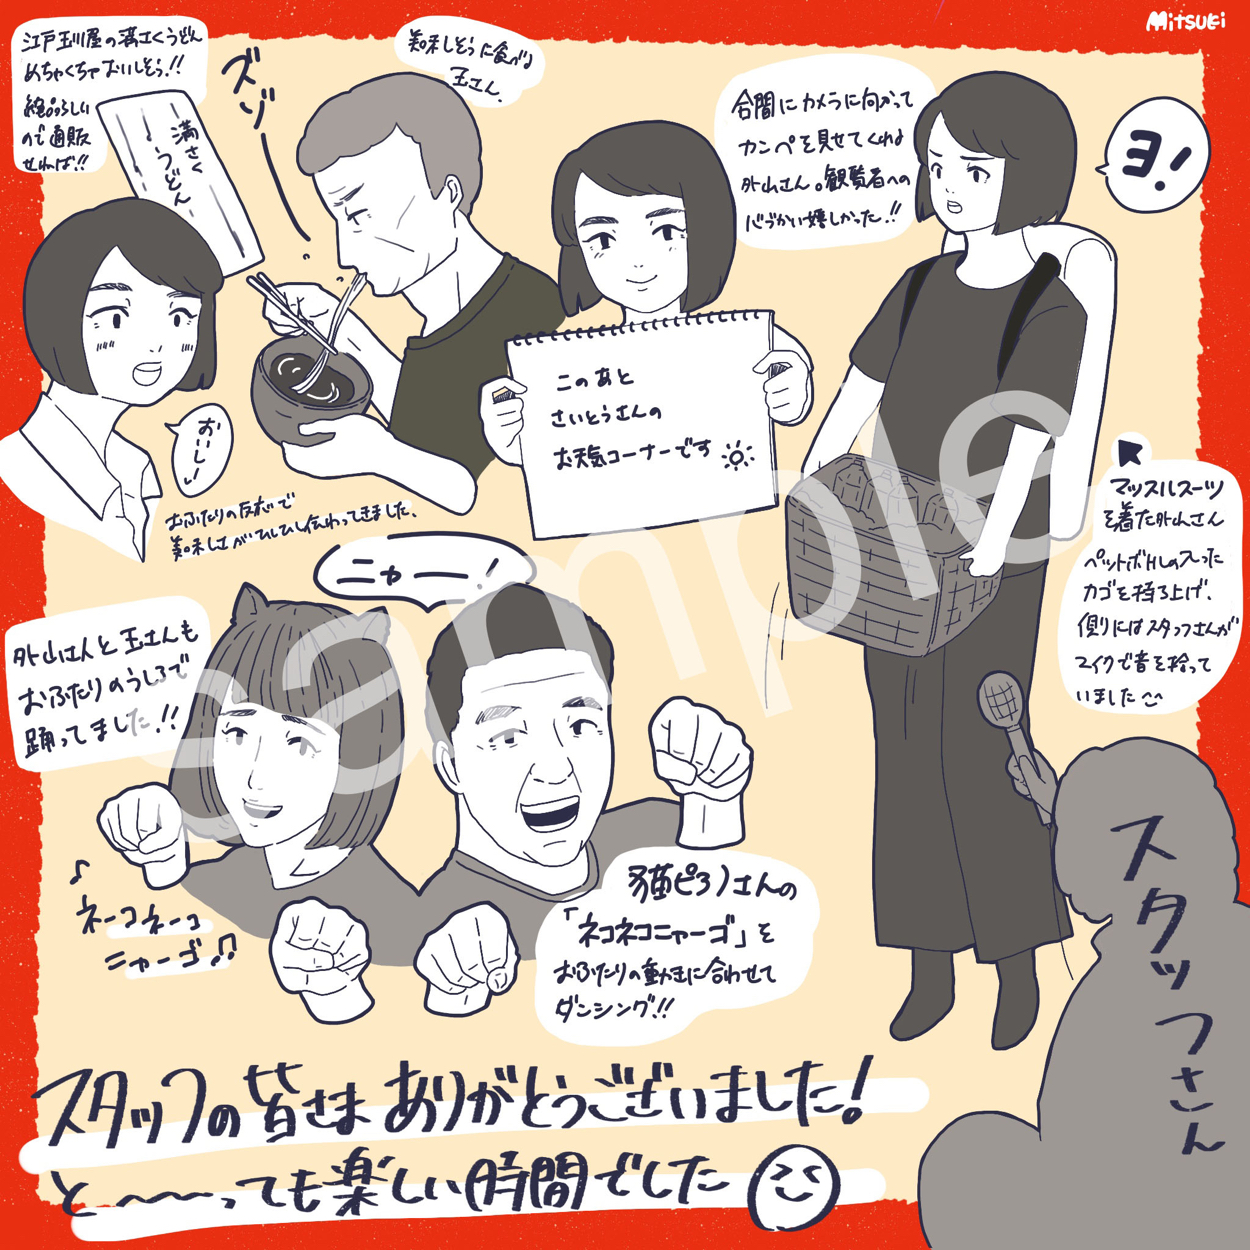 Mitsuki
江戸玉川屋の満さくうどん
めちゃくちゃおいしそう!!
ので通販
せねば!!
満さく
うどん
ズゾー
美味しそうに食べる
玉さん.
合間にカメラに向かって
カンペを見せてくれる
外山さん。観覧者への
心づかい嬉しかった!!
ヨ!
このあと
さいとうさんの
お天気コーナーです
おいしー!
おふたりの反応で
美味しさがひしひし伝わってきました.
マッスルスーツ
を着た外山さん
ペットボトルの入った
カゴを持ち上げ、
側にはスタッフさんが
マイクで音を拾って
いました
ニャー!
外山さんと玉さんも
おふたりのうしろで
踊ってました!!
♪
ネーコネーコ
ニャーゴ♪♫
猫ピろノさんの
「ネコネコニャーゴ」を
おふたりの動きに合わせて
ダンシング!!
スタッフさん
スタッフの皆さまありがとうございました!
と〜〜〜っても楽しい時間でした
sample